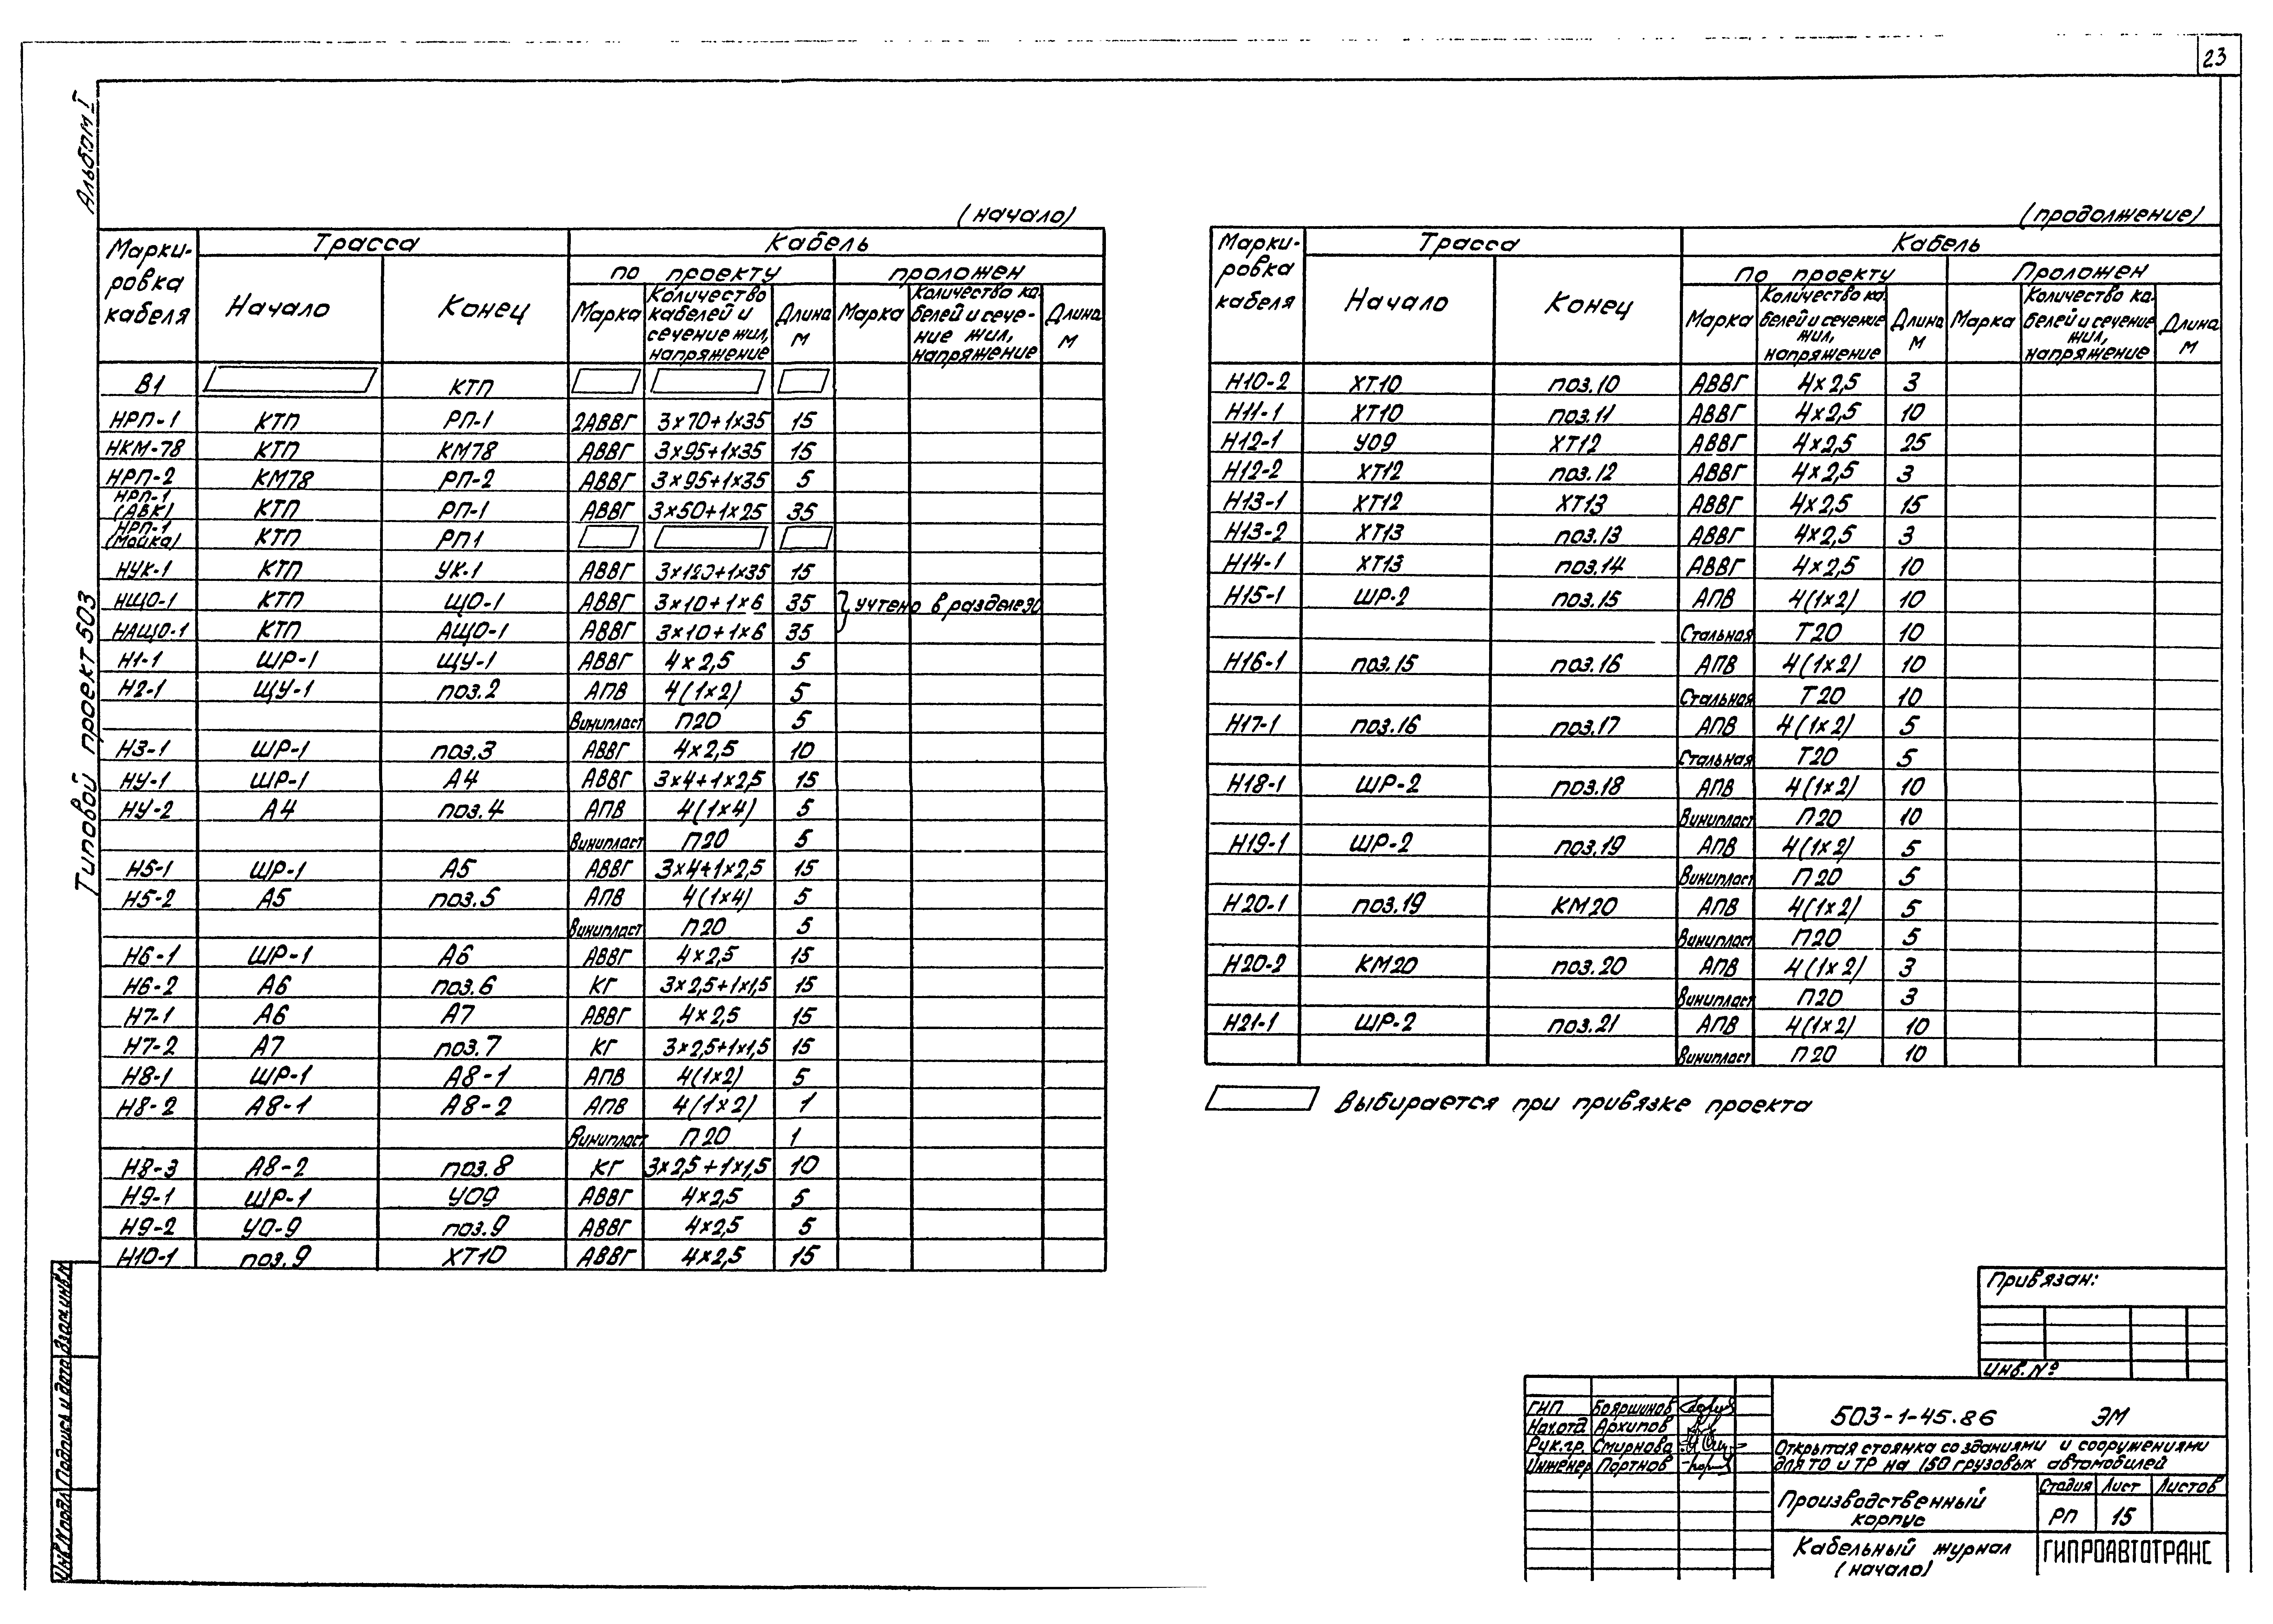 23
Альбом I
Типовой проект 503
(начало)
Марки- Трасса Кабель
ровка по проекту проложен
кабеля Начало Конец Марка Количество кабелей и сечение жил, напряжение Длина м Марка Количество ка- белей и сече- ние жил, напряжение Длина м
В1 КТП
НРП-1 КТП РП-1 2АВВГ 3×70+1×35 15
НКМ-78 КТП КМ78 АВВГ 3×95+1×35 15
НРП-2 КМ78 РП-2 АВВГ 3×95+1×35 5
НРП-1 (АВК) КТП РП-1 АВВГ 3×50+1×25 35
НРП-1 (Мойка) КТП РП1
НУК-1 КТП УК-1 АВВГ 3×120+1×35 15
НЩО-1 КТП ЩО-1 АВВГ 3×10+1×6 35 учтено в разделе ЭО
НАЩО-1 КТП АЩО-1 АВВГ 3×10+1×6 35
Н1-1 ШР-1 ЩУ-1 АВВГ 4×2,5 5
Н2-1 ЩУ-1 поз.2 АПВ 4(1×2) 5
Винипласт П20 5
Н3-1 ШР-1 поз.3 АВВГ 4×2,5 10
НУ-1 ШР-1 А4 АВВГ 3×4+1×2,5 15
НУ-2 А4 поз.4 АПВ 4(1×4) 5
Винипласт П20 5
Н5-1 ШР-1 А5 АВВГ 3×4+1×2,5 15
Н5-2 А5 поз.5 АПВ 4(1×4) 5
Винипласт П20 5
Н6-1 ШР-1 А6 АВВГ 4×2,5 15
Н6-2 А6 поз.6 КГ 3×2,5+1×1,5 15
Н7-1 А6 А7 АВВГ 4×2,5 15
Н7-2 А7 поз.7 КГ 3×2,5+1×1,5 15
Н8-1 ШР-1 А8-1 АПВ 4(1×2) 5
Н8-2 А8-1 А8-2 АПВ 4(1×2) 1
Винипласт П20 1
Н8-3 А8-2 поз.8 КГ 3×2,5+1×1,5 10
Н9-1 ШР-1 УО9 АВВГ 4×2,5 5
Н9-2 УО-9 поз.9 АВВГ 4×2,5 5
Н10-1 поз.9 ХТ10 АВВГ 4×2,5 15
(продолжение)
Марки- Трасса Кабель
ровка По проекту Проложен
кабеля Начало Конец Марка Количество ка- белей и сечение жил, напряжение Длина м Марка Количество ка- белей и сечение жил, напряжение Длина м
Н10-2 ХТ10 поз.10 АВВГ 4×2,5 3
Н11-1 ХТ10 поз.11 АВВГ 4×2,5 10
Н12-1 УО9 ХТ12 АВВГ 4×2,5 25
Н12-2 ХТ12 поз.12 АВВГ 4×2,5 3
Н13-1 ХТ12 ХТ13 АВВГ 4×2,5 15
Н13-2 ХТ13 поз.13 АВВГ 4×2,5 3
Н14-1 ХТ13 поз.14 АВВГ 4×2,5 10
Н15-1 ШР-2 поз.15 АПВ 4(1×2) 10
Стальная Т20 10
Н16-1 поз.15 поз.16 АПВ 4(1×2) 10
Стальная Т20 10
Н17-1 поз.16 поз.17 АПВ 4(1×2) 5
Стальная Т20 5
Н18-1 ШР-2 поз.18 АПВ 4(1×2) 10
Винипласт П20 10
Н19-1 ШР-2 поз.19 АПВ 4(1×2) 5
Винипласт П20 5
Н20-1 поз.19 КМ20 АПВ 4(1×2) 5
Винипласт П20 5
Н20-2 КМ20 поз.20 АПВ 4(1×2) 3
Винипласт П20 3
Н21-1 ШР-2 поз.21 АПВ 4(1×2) 10
Винипласт П20 10
Выбирается при привязке проекта
Привязан:
Инв.№
ГИП Бояршинов
Нач.отд Архипов
Рук.гр. Смирнова
Инженер Портнов
503-1-45.86 ЭМ
Открытая стоянка со зданиями и сооружениями
для ТО и ТР на 150 грузовых автомобилей
Производственный
корпус
Стадия Лист Листов
РП 15
Кабельный журнал
(начало)
ГИПРОАВТОТРАНС
Инв.№подл. Подпись и дата Взам.инв.№